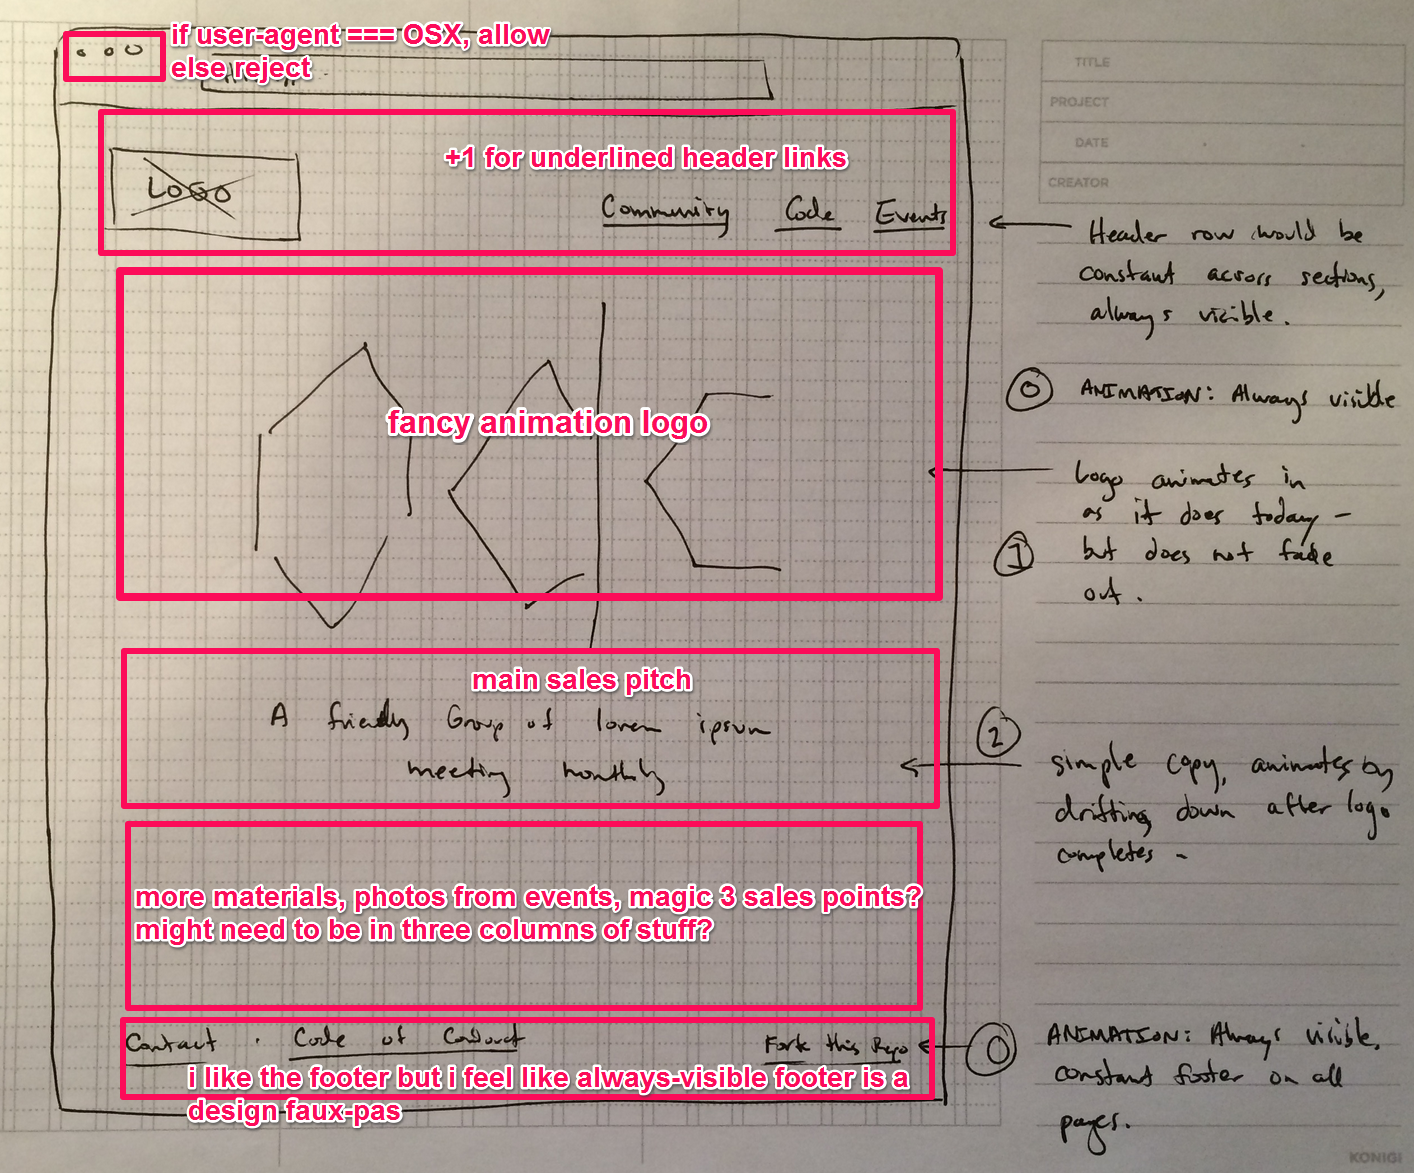 if user-agent === OSX, allow
else reject
TITLE
PROJECT
DATE
CREATOR
+1 for underlined header links
LOGO
Community Code Events
Header row would be
constant across sections,
always visible.
0 ANIMATION: Always visible
fancy animation logo
Logo animates in
as it does today -
1 but does not fade
out.
main sales pitch
A friendly Group of lorem ipsum
meeting monthly
2 simple copy, animates by
drifting down after logo
completes -
more materials, photos from events, magic 3 sales points?
might need to be in three columns of stuff?
Contact · Code of Conduct Fork this Repo
i like the footer but i feel like always-visible footer is a
design faux-pas
0 ANIMATION: Always visible,
constant footer on all
pages.
KONIGI